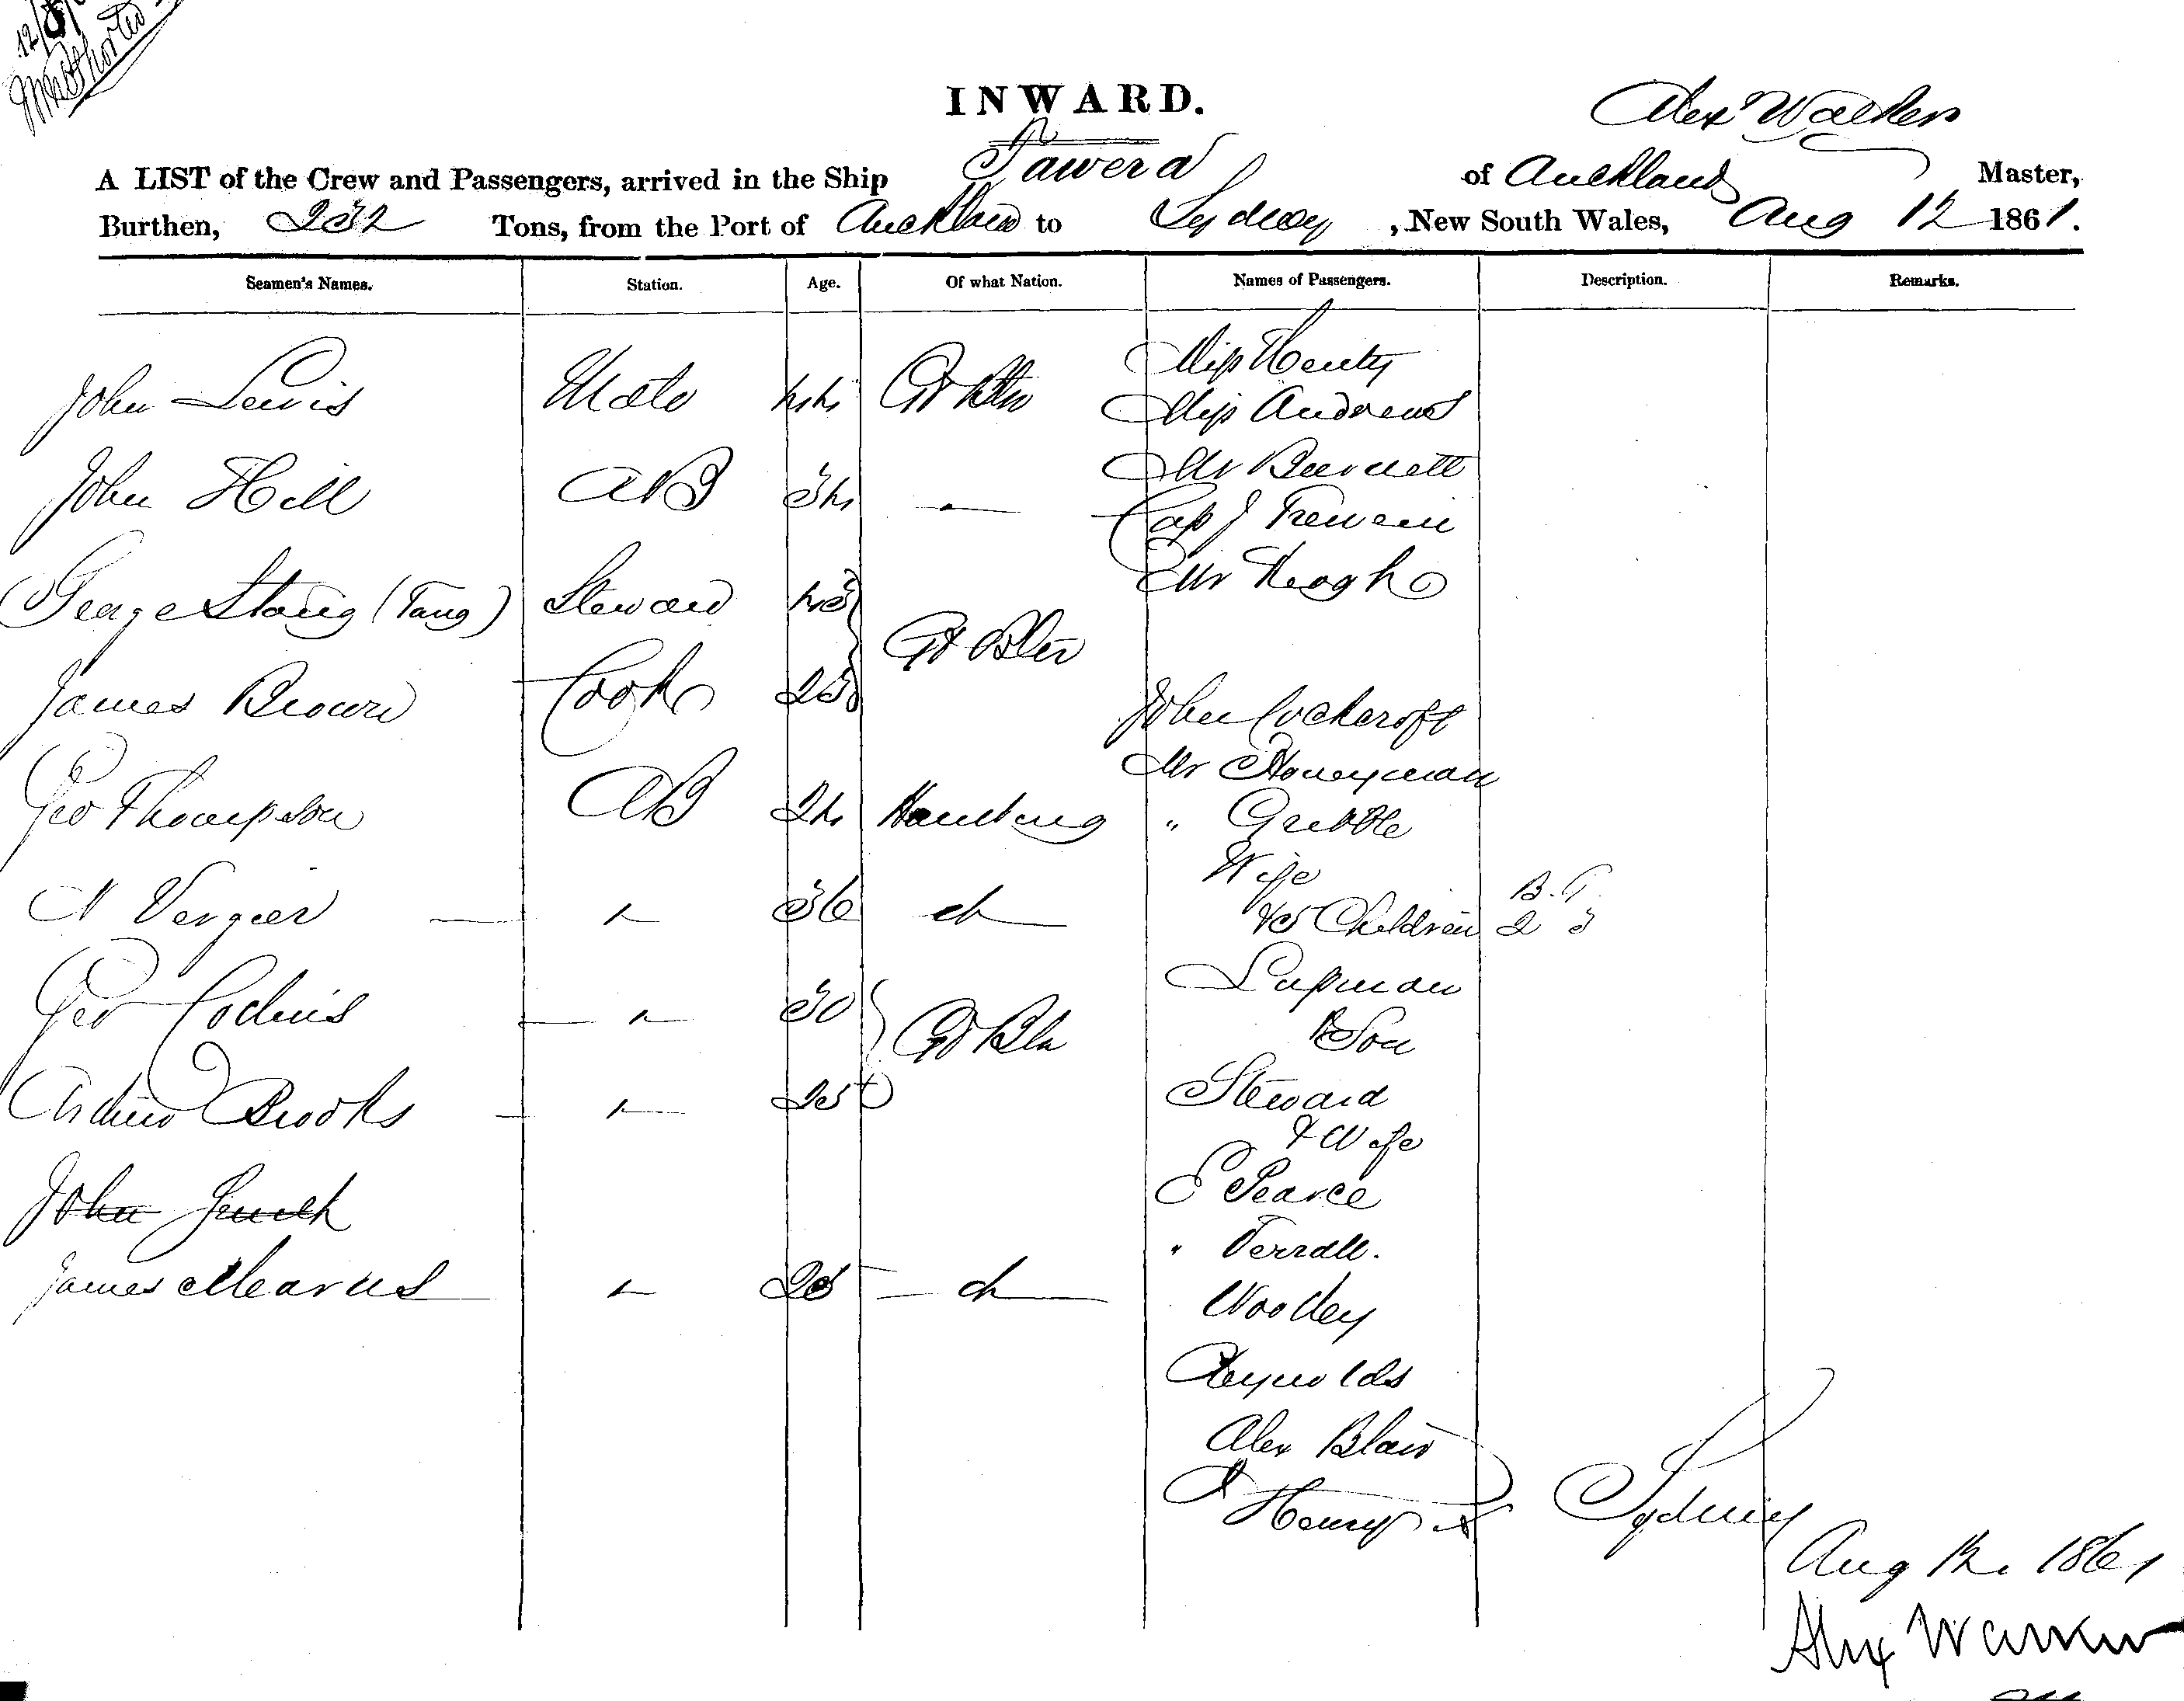 INWARD.
Alex Walker
A LIST of the Crew and Passengers, arrived in the Ship Tawera of Auckland Master,
Burthen, 232 Tons, from the Port of Auckland to Sydney, New South Wales, Aug 12 1861.
Seamen's Names. Station. Age. Of what Nation. Names of Passengers. Description. Remarks.
Miss Henty
John Lewis Mate 44 Gt Btn
Miss Andrews
Mr Burnett
John Hill AB 34 —
Cap J
Mr Keogh
George Stang (Tang) Steward 43
Gt Btn
James Brown Cook 25
John Cockcroft
Mr Honeyman
Geo Thompson AB 24 Hamburg " Gribble
Wife
B. G.
N Vergier " 36 do
& 5 Children 2 3
Lapman
Geo " 30
& Son
Gt Btn
Andrew Brooks " 25
Steward
& Wife
E Pearce
John Smith
" Verrall.
James Mearns " 25 do
Woolley
Reynolds
Alex Blair
Henry
Sydney
Aug 12. 1861
Alex Walker